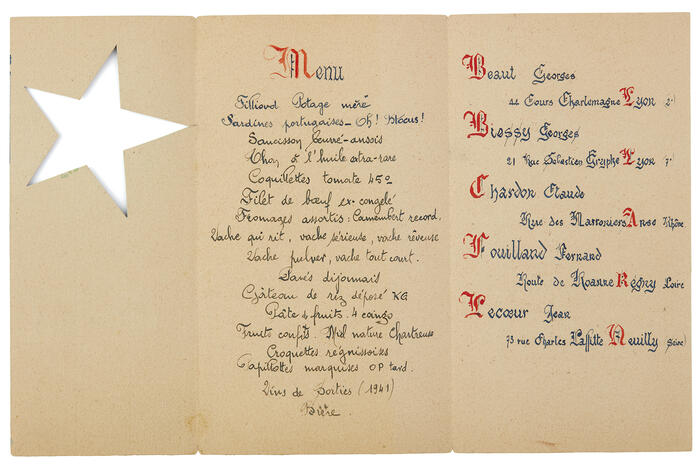 Menu
Filliovd Potage méré
Sardines portugaises - Oh! Blocus!
Saucisson beuvré-ansois
Thon à l'huile atra-rare
Coquillettes tomate 45°
Filet de bœuf ex-congelé
Fromages assortis: Camembert record,
Vache qui rit, vache sérieuse, vache rêveuse
Vache pulver, vache tout court.
Pavés dijonnais
Gâteau de riz déposé KG
Pâte de fruits. 4 coings
Fruits confits. Miel nature Chartreuse
Croquettes régnissoises
Papillottes marquises OP tard.
Vins de Sorties (1941)
Bière.
Beaut Georges
44 Cours Charlemagne Lyon (2e)
Biessy Georges
21 Rue Sébastien Gryphe Lyon 7e
Chardon Claude
Rue des Marronniers Anse Rhône
Fouilland Fernand
Route de Roanne Régny Loire
Lecœur Jean
73 rue Charles Laffitte Neuilly (Seine)